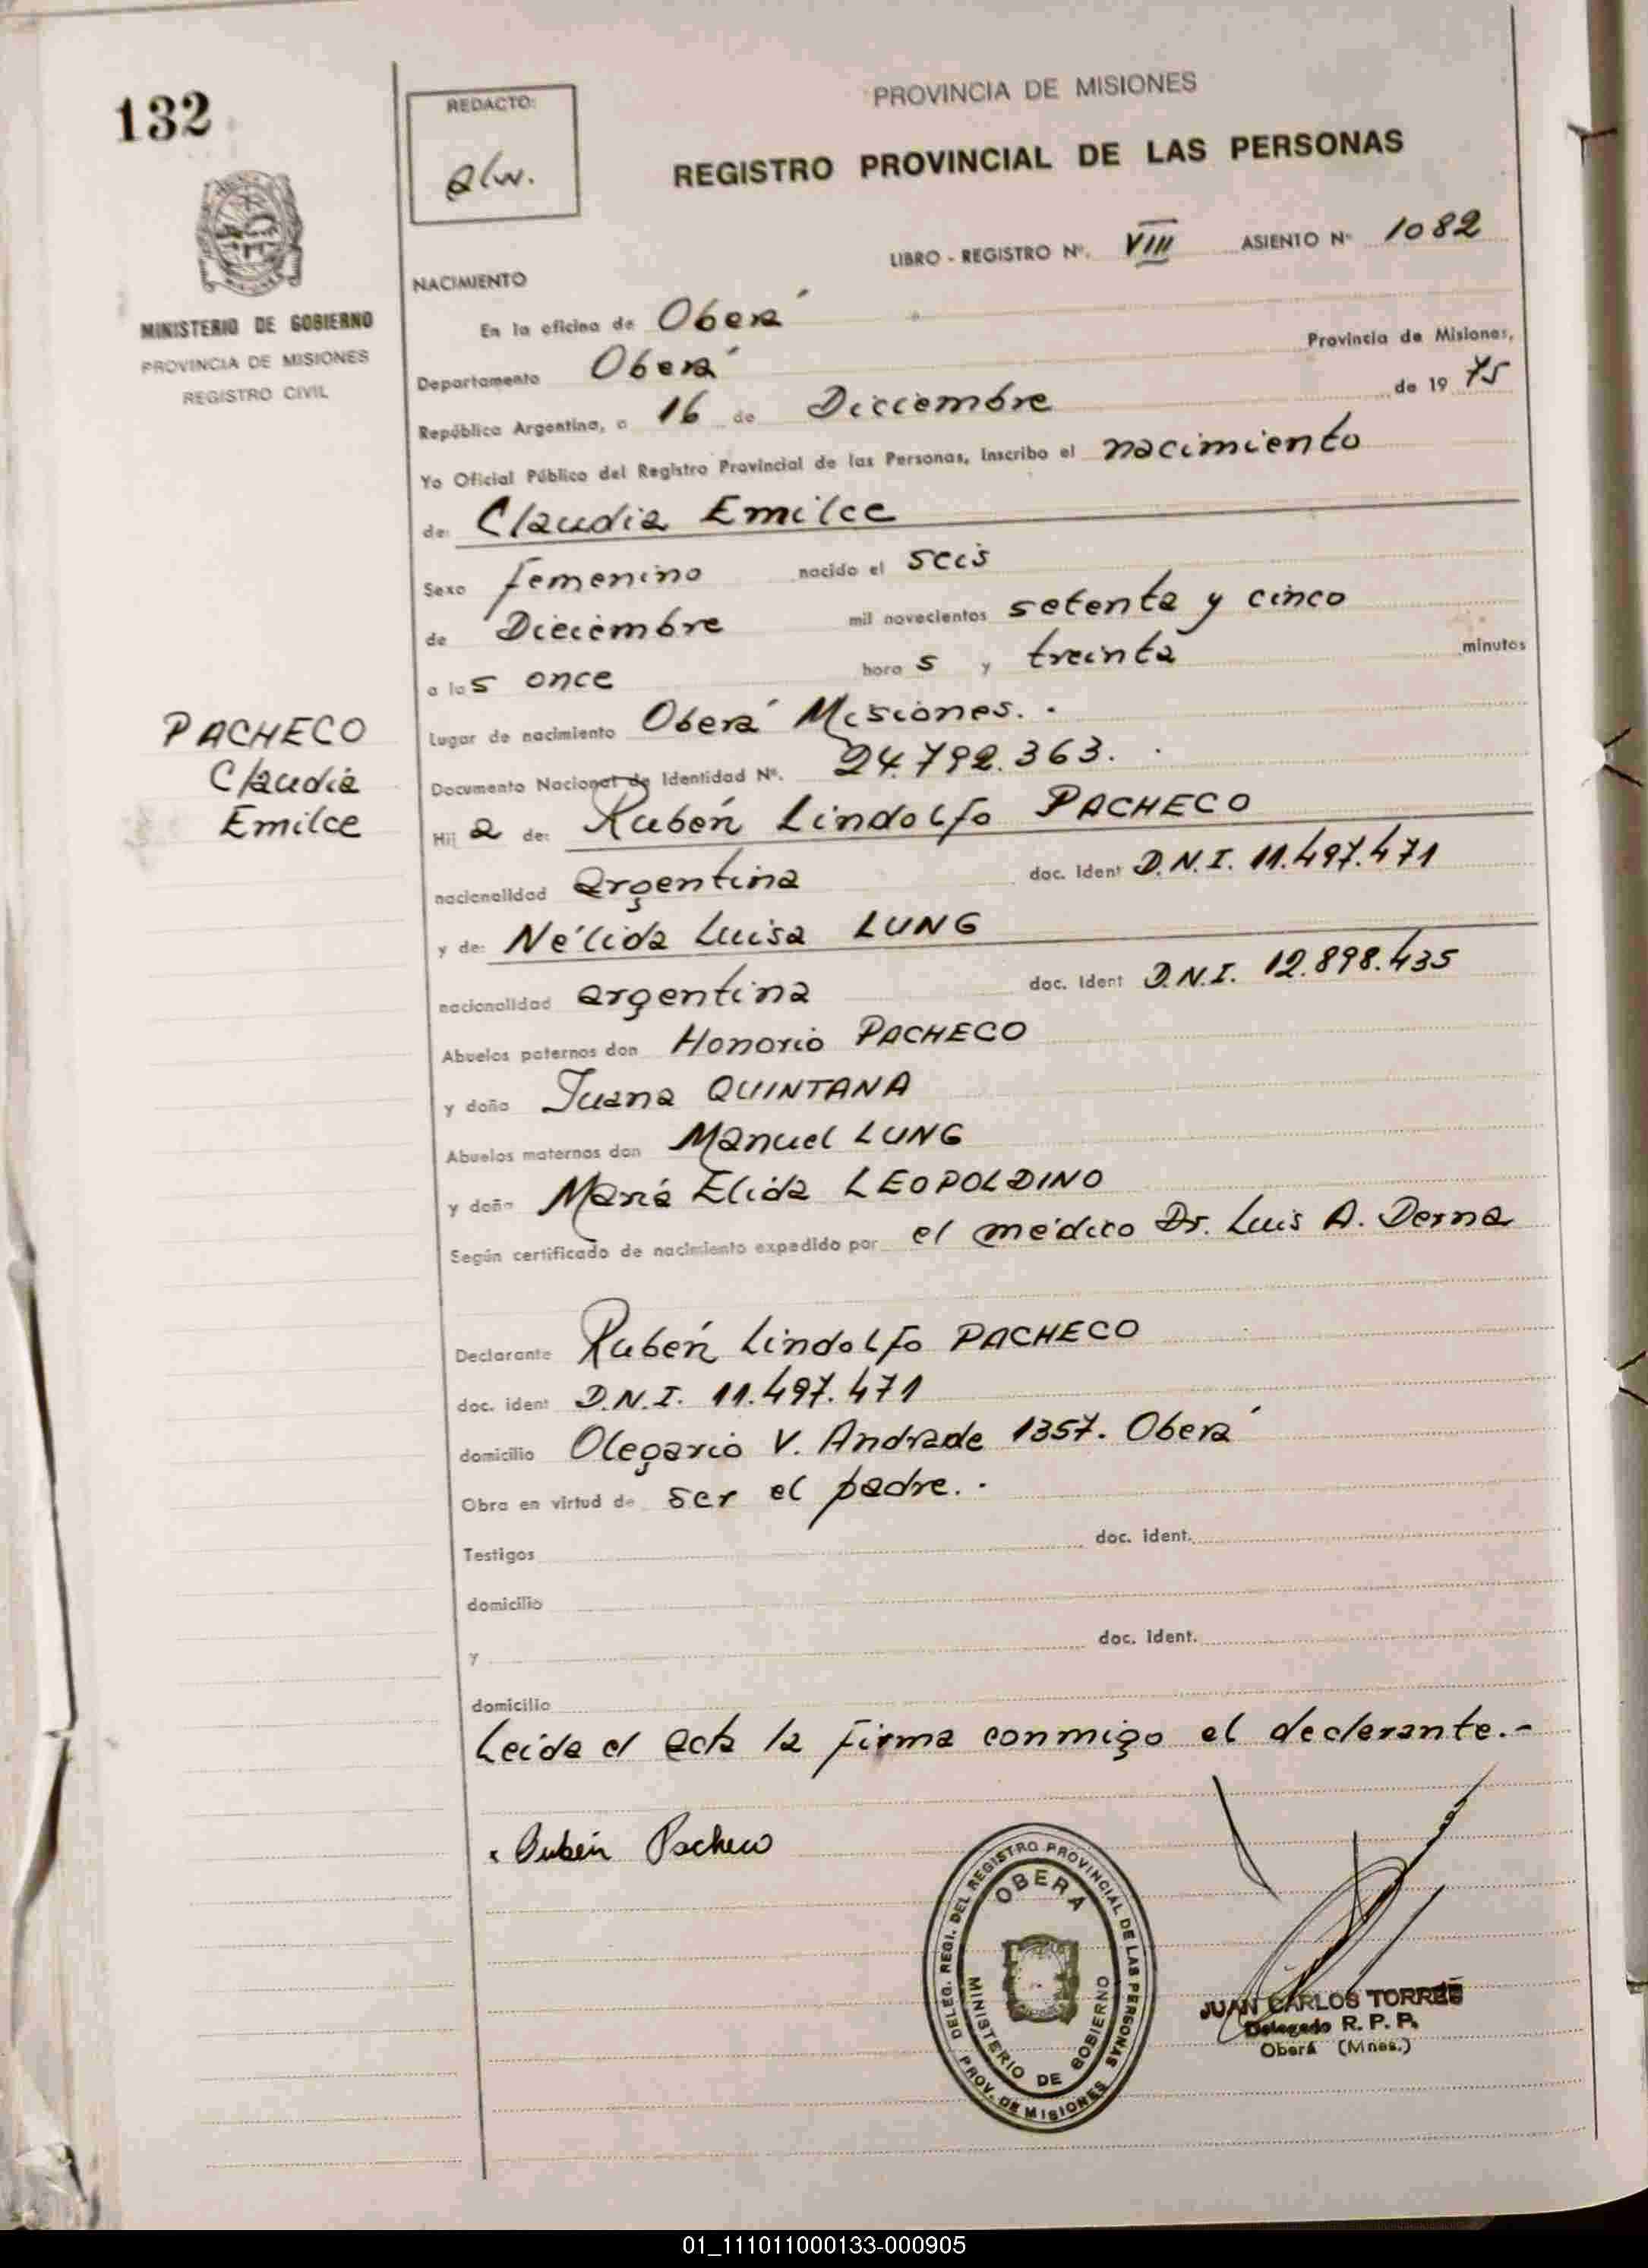 132
REDACTO:
alw.
PROVINCIA DE MISIONES
REGISTRO PROVINCIAL DE LAS PERSONAS
LIBRO - REGISTRO Nº. VIII ASIENTO Nº 1082
MINISTERIO DE GOBIERNO
PROVINCIA DE MISIONES
REGISTRO CIVIL
NACIMIENTO
En la oficina de Oberá
Departamento Oberá Provincia de Misiones,
República Argentina, a 16 de Diciembre de 19 75
Yo Oficial Público del Registro Provincial de las Personas, Inscribo el nacimiento
de: Claudia Emilce
Sexo femenino nacido el seis
de Dieciembre mil novecientos setenta y cinco
a las once horas y treinta minutos
Lugar de nacimiento Oberá Misiones. .
Documento Nacional de Identidad Nº. 24.792.363. .
PACHECO
Claudia
Emilce
Hij a de: Rubén Lindolfo PACHECO
nacionalidad argentina doc. Ident D.N.I. 11.497.471
y de: Nélida Luisa LUNG
nacionalidad argentina doc. Ident D.N.I. 12.898.435
Abuelos paternos don Honorio PACHECO
y doña Juana QUINTANA
Abuelos maternos don Manuel LUNG
y doña María Elida LEOPOLDINO
Según certificado de nacimiento expedido por el médico Dr. Luis A. Derna
Declarante Rubén Lindolfo PACHECO
doc. ident D.N.I. 11.497.471
domicilio Olegario V. Andrade 1357. Oberá
Obra en virtud de ser el padre. .
Testigos doc. ident.
domicilio
y doc. ident.
domicilio
Leida el acta la firma conmigo el declarante.-
x Rubén Pacheco
DELEG. REGI. DEL REGISTRO PROVINCIAL DE LAS PERSONAS
OBERA
MINISTERIO DE GOBIERNO
PROV. DE MISIONES
JUAN CARLOS TORRES
Delegado R. P. P.
Oberá (Mnes.)
01_111011000133-000905